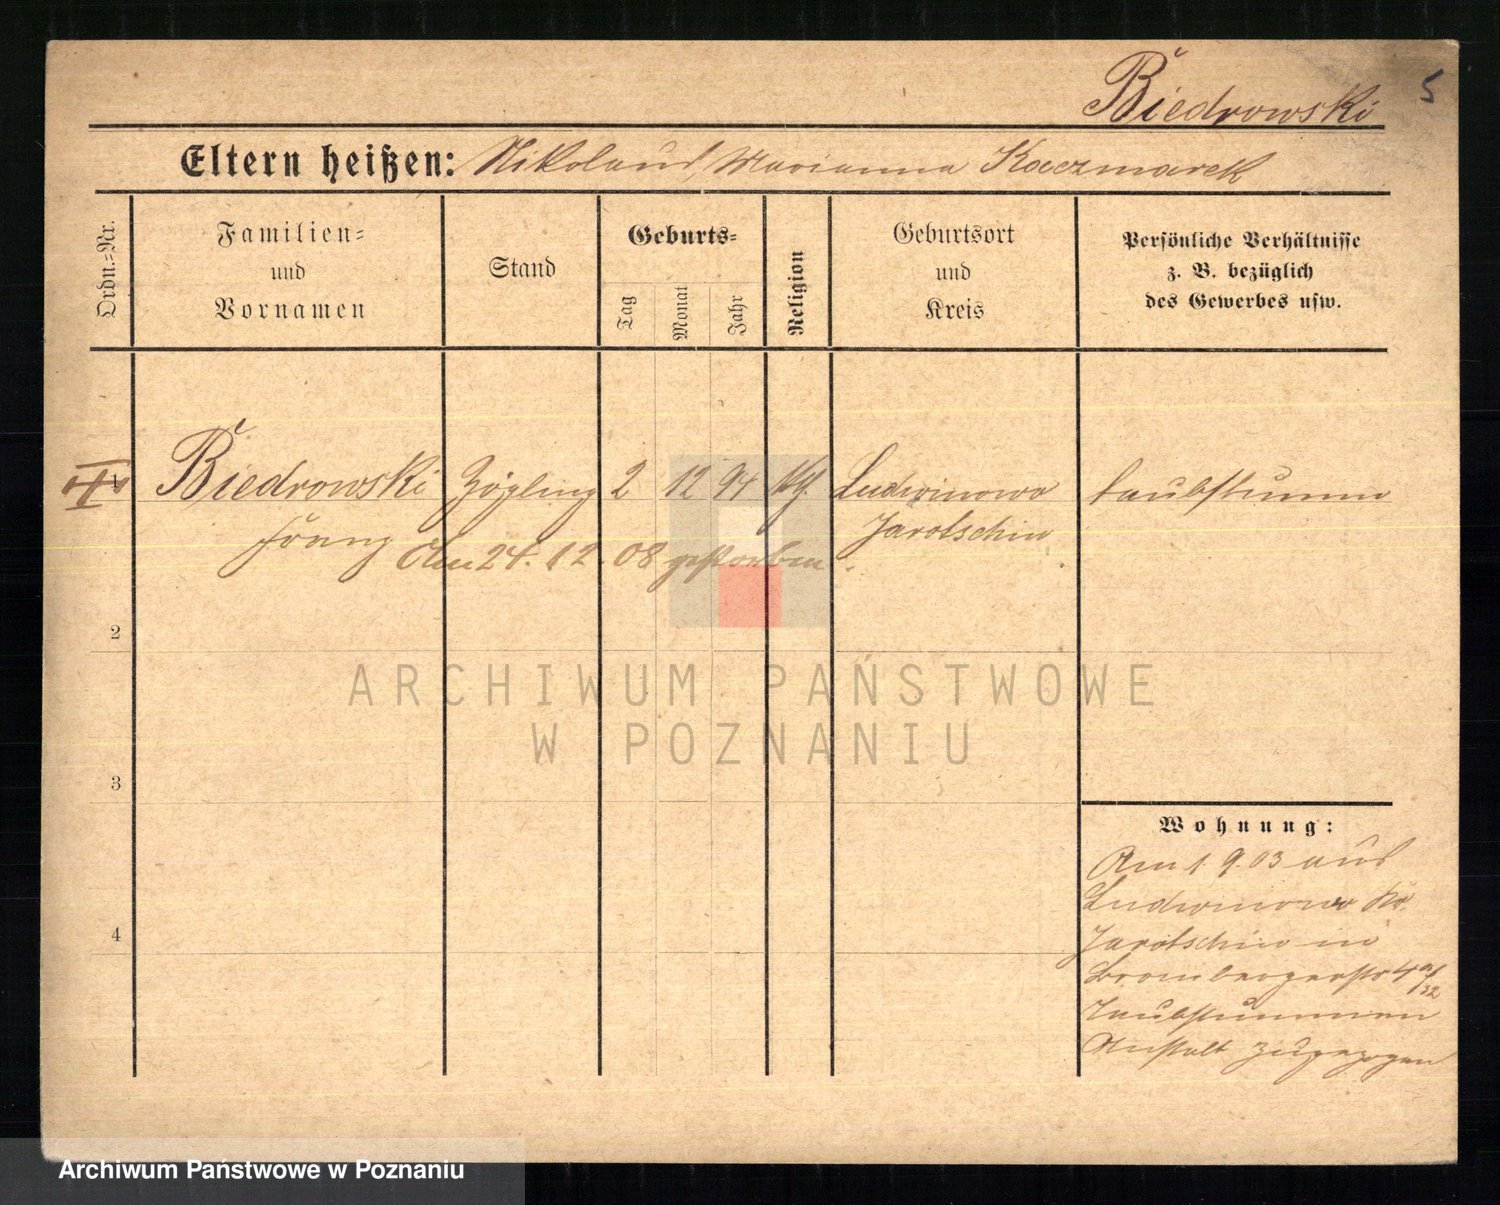 Biedrowski
5
Eltern heißen: Nikolaus, Marianna Kaczmarek
Ordn.-Nr.
Familien-
und
Vornamen
Stand
Geburts-
Tag
Monat
Jahr
Religion
Geburtsort
und
Kreis
Persönliche Verhältnisse
z. B. bezüglich
des Gewerbes usw.
Biedrowski Zögling 2 12 94 kth. Ludwinowo taubstumm
Franz Jarotschin
Am 24. 12. 08 gestorben.
2
3
4
ARCHIWUM PAŃSTWOWE
W POZNANIU
Wohnung:
Am 1. 9. 03 aus
Ludwinowo Kr.
Jarotschin in
Brombergerstr 4a/32
Taubstummen
Anstalt zugezogen
Archiwum Państwowe w Poznaniu